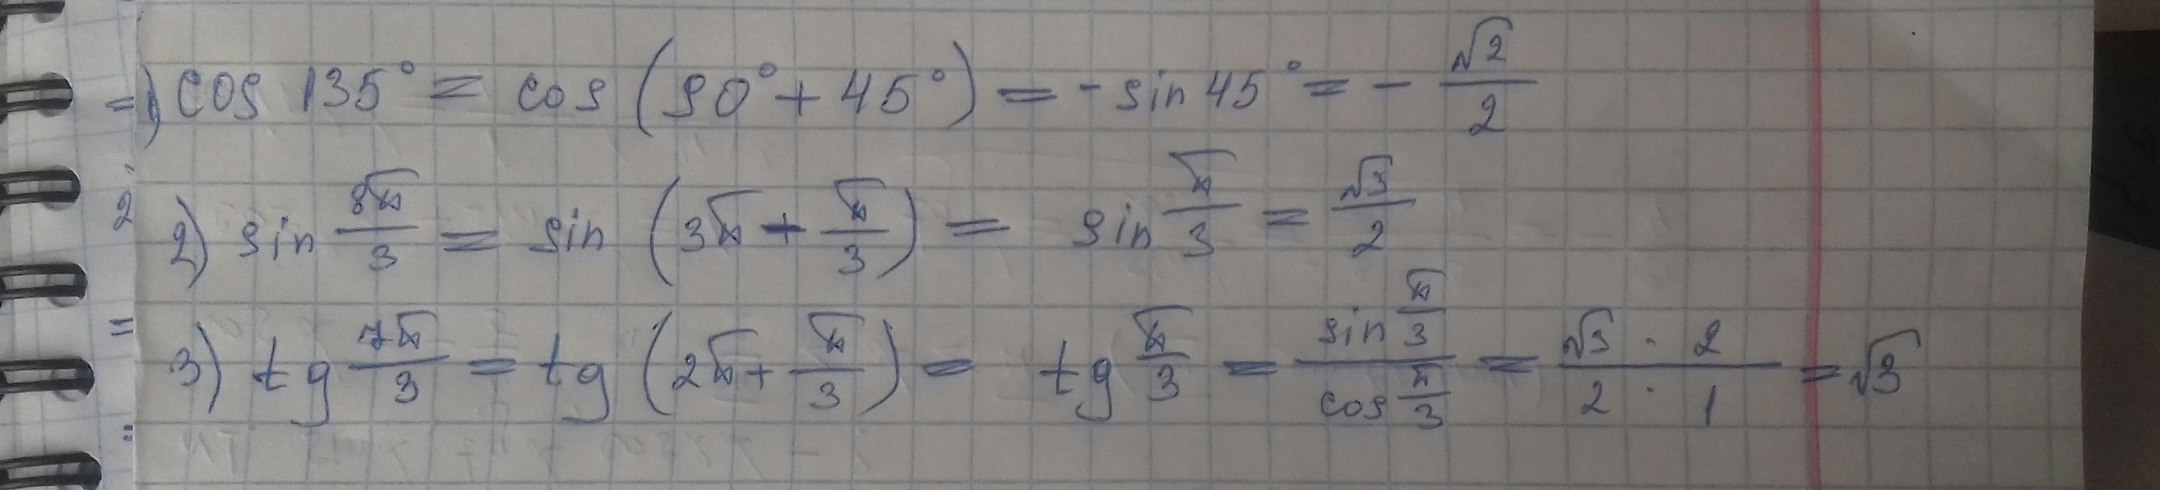 1) cos 135° = cos (90° + 45°) = - sin 45° = - √2/2
2) sin 8π/3 = sin (3π + π/3) = sin π/3 = √3/2
3) tg 7π/3 = tg (2π + π/3) = tg π/3 = sin π/3 / cos π/3 = √3 · 2 / 2 · 1 = √3